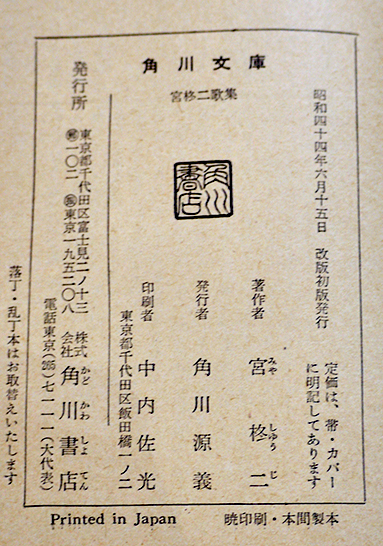 角川文庫
宮柊二歌集
昭和四十四年六月十五日 改版初版発行
定価は、帯・カバー
に明記してあります
角川書店
著作者 宮柊二
みや しゅう じ
発行者 角川源義
印刷者 中内佐光
東京都千代田区飯田橋一ノ二
発行所
東京都千代田区富士見二ノ十三
〒一〇二 振東京一九五二〇八
株式会社 角川書店
かど かわ しょ てん
電話東京(265)七一一一(大代表)
落丁・乱丁本はお取替えいたします
Printed in Japan 暁印刷・本間製本